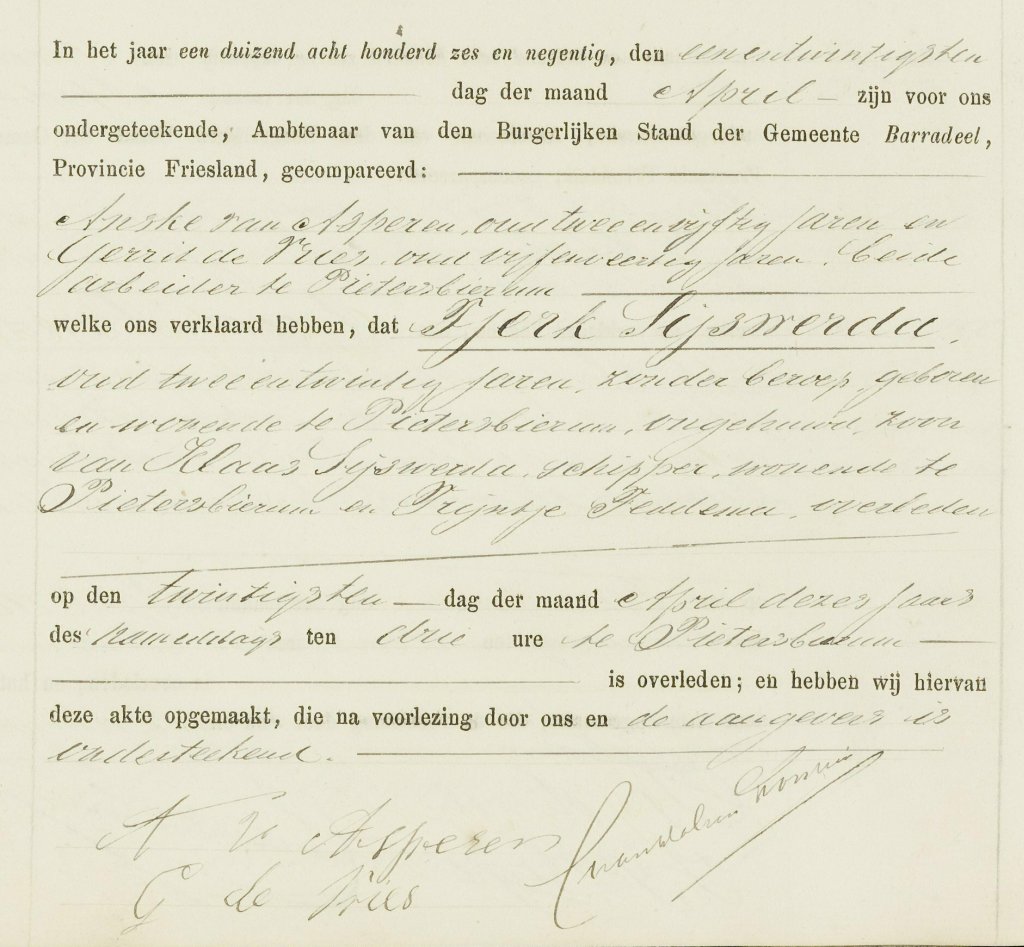 In het jaar een duizend acht honderd zes en negentig, den eenentwintigsten
dag der maand April zijn voor ons
ondergeteekende, Ambtenaar van den Burgerlijken Stand der Gemeente Barradeel,
Provincie Friesland, gecompareerd:
Anske van Asperen, oud twee en vijftig jaren en
Gerrit de Vries, oud vijfenveertig jaren, beide
arbeider te Pietersbierum
welke ons verklaard hebben, dat Tjerk Sijswerda,
oud tweeentwintig jaren, zonder beroep, geboren
en wonende te Pietersbierum, ongehuwd, zoon
van Klaas Sijswerda, schipper, wonende te
Pietersbierum en Trijntje Feddema, overleden
op den twintigsten dag der maand April dezes jaars
des namiddags ten drie ure te Pietersbierum
is overleden; en hebben wij hiervan
deze akte opgemaakt, die na voorlezing door ons en de aangevers is
onderteekend.
A v Asperen
G de Vries